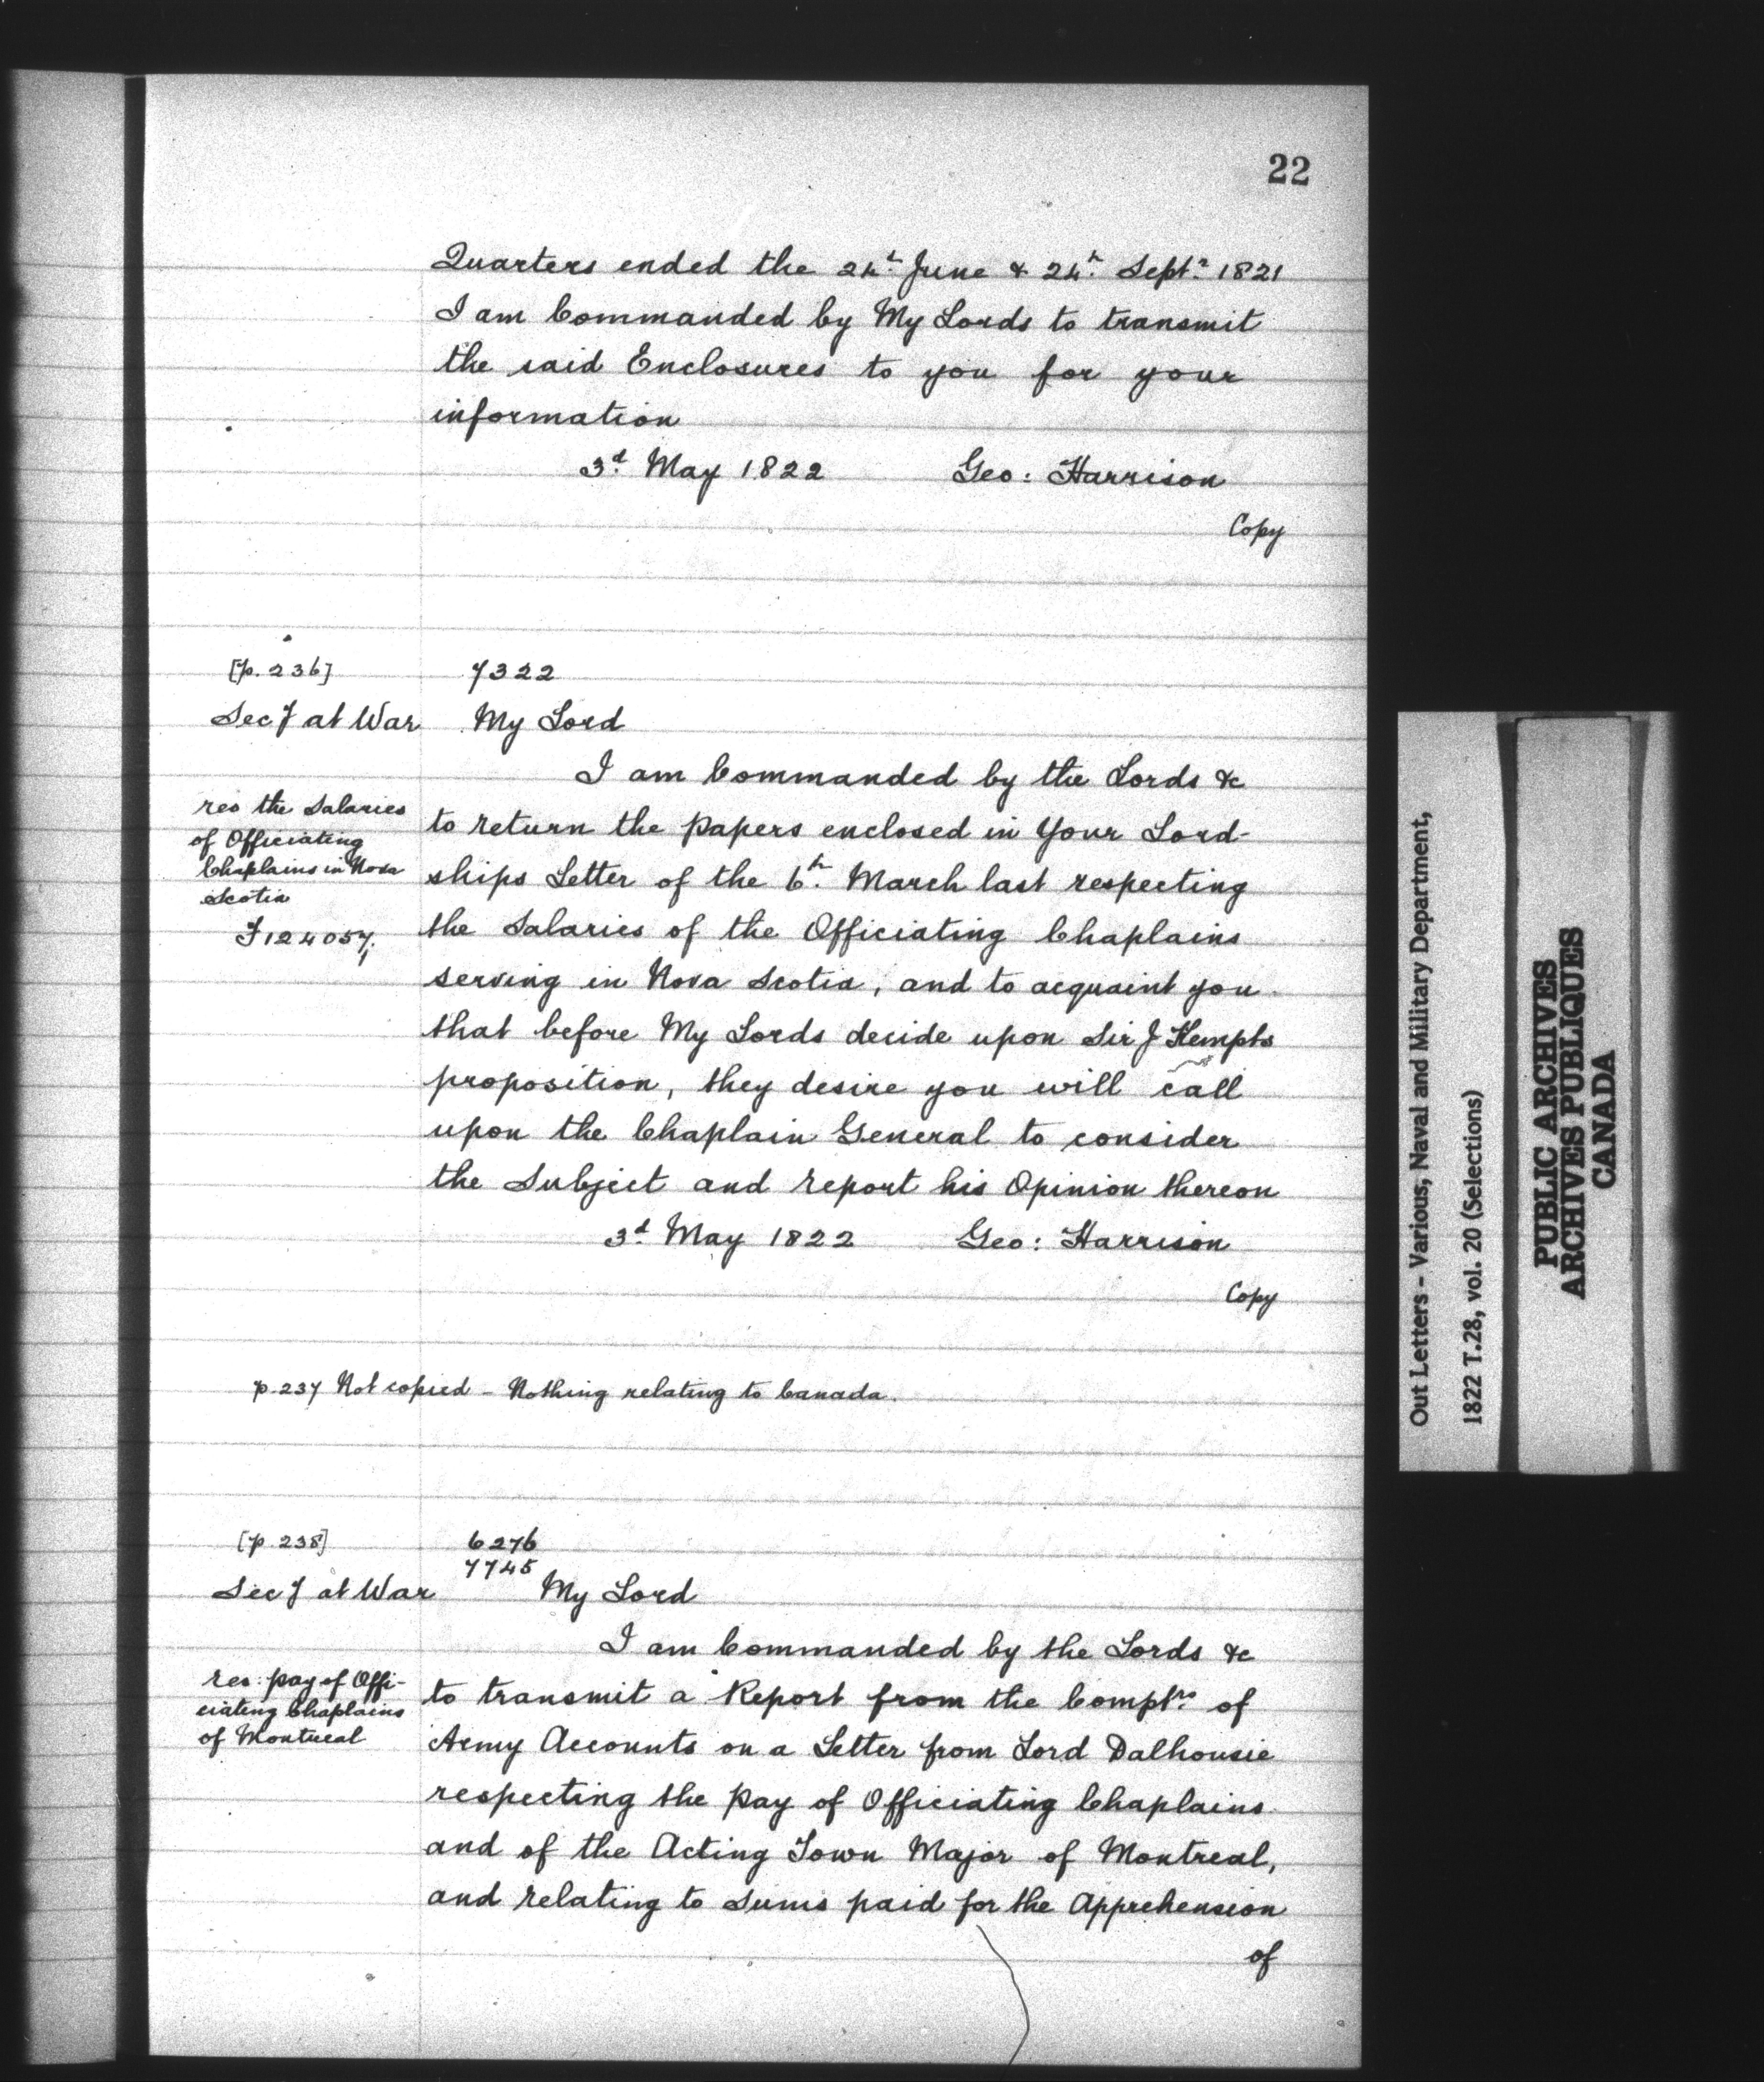 22
Quarters ended the 24th June & 24th Septr 1821
I am Commanded by My Lords to transmit
the said Enclosures to you for your
information
3d May 1822 Geo: Harrison
Copy
[p. 236] 7322
Secy at War My Lord
I am Commanded by the Lords &c
res the Salaries
of Officiating
Chaplains in Nova
Scotia
to return the papers enclosed in Your Lord-
ships Letter of the 6th March last respecting
the Salaries of the Officiating Chaplains
serving in Nova Scotia, and to acquaint you
that before My Lords decide upon Sir J Kempts
proposition, they desire you will call
upon the Chaplain General to consider
the Subject and report his Opinion thereon
3d May 1822 Geo: Harrison
Copy
p. 237 Not copied - Nothing relating to Canada.
[p 238] 6276
7745
Secy at War My Lord
I am Commanded by the Lords &c
res: pay of Offi-
ciating Chaplains
of Montreal
to transmit a Report from the Comptrs of
Army Accounts on a Letter from Lord Dalhousie
respecting the pay of Officiating Chaplains
and of the Acting Town Major of Montreal,
and relating to Sums paid for the Apprehension
of
Out Letters - Various, Naval and Military Department,
1822 T.28, vol. 20 (Selections)
PUBLIC ARCHIVES
ARCHIVES PUBLIQUES
CANADA